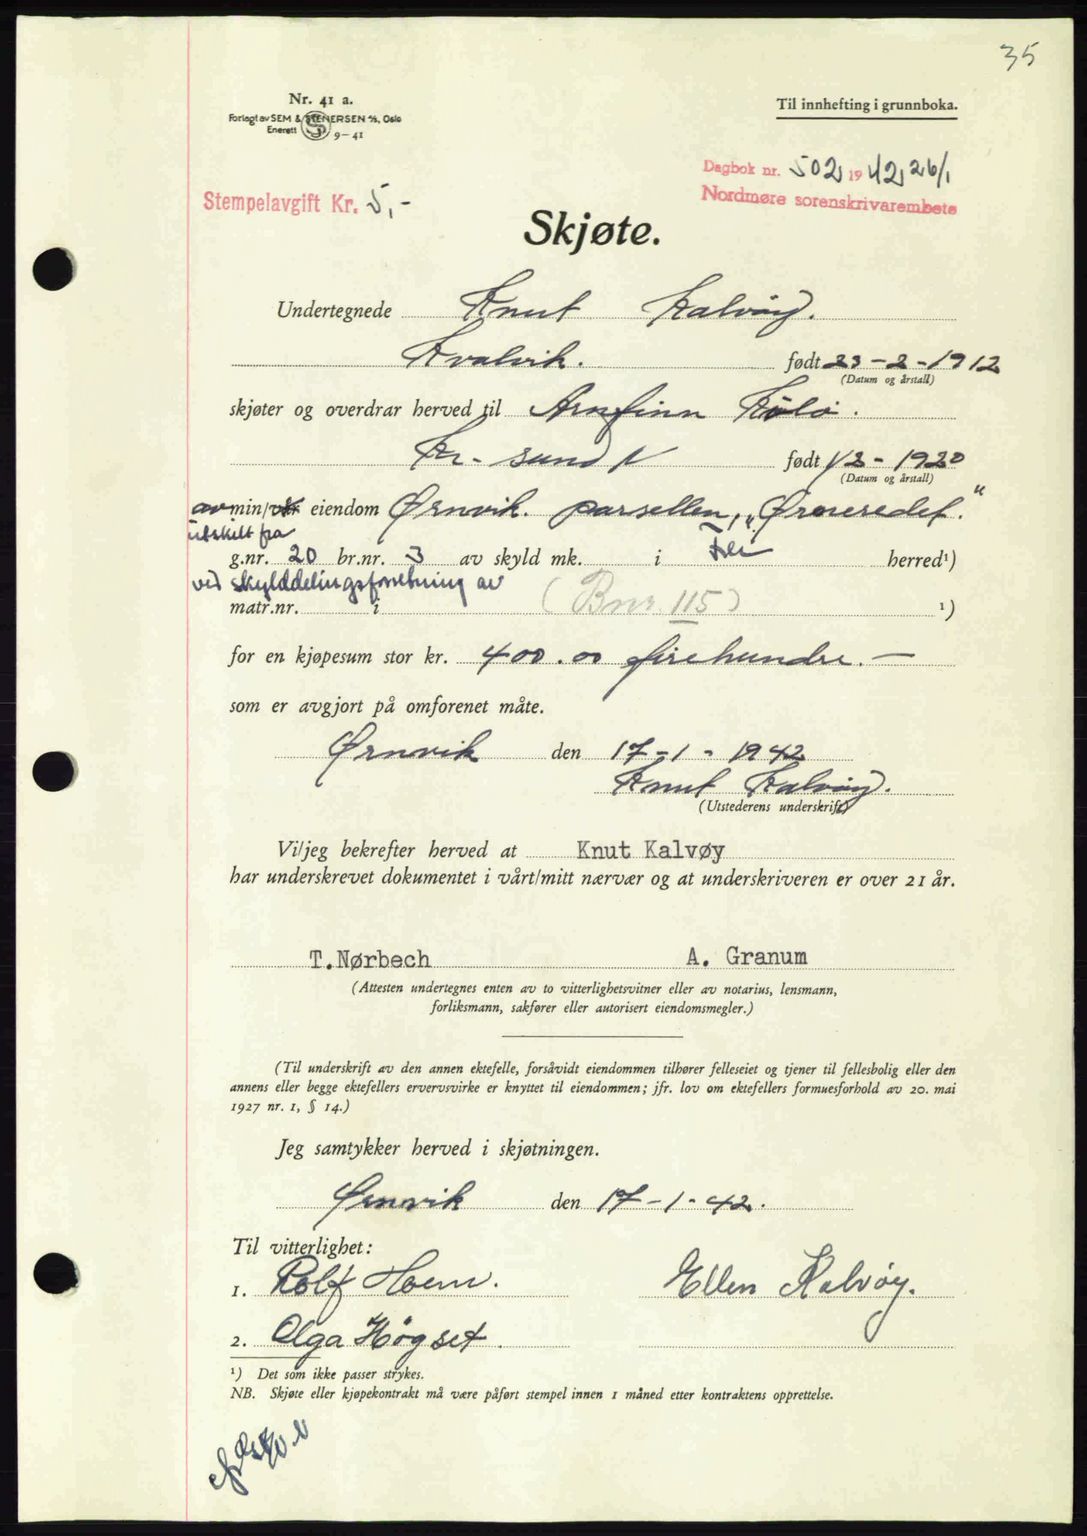 35
Nr. 41 a.
Forlagt av SEM & STENERSEN A/S, Oslo
Enerett 9-41
Til innhefting i grunnboka.
Dagbok nr. 502 1942 26/1
Nordmøre sorenskrivarembete
Stempelavgift Kr. 5,-
Skjøte.
Undertegnede Knut Kalvøy.
Kvalvik. født 23-2-1912
(Datum og årstall)
skjøter og overdrar herved til Arnfinn
Kr-sund N født 1/2-1920
(Datum og årstall)
av min/vår eiendom Ørnvik. parsellen, "
utskilt fra
g.nr. 20 br.nr. 3 av skyld mk. i Frei herred¹)
ved skylddelingsforretning av
matr.nr. i (Bnr. 115) ¹)
for en kjøpesum stor kr. 400.00 firehundre.—
som er avgjort på omforenet måte.
Ørnvik den 17-1-1942
Knut Kalvøy.
(Utstederens underskrift)
Vi/jeg bekrefter herved at Knut Kalvøy
har underskrevet dokumentet i vårt/mitt nærvær og at underskriveren er over 21 år.
T.Nørbech A. Granum
(Attesten undertegnes enten av to vitterlighetsvitner eller av notarius, lensmann,
forliksmann, sakfører eller autorisert eiendomsmegler.)
(Til underskrift av den annen ektefelle, forsåvidt eiendommen tilhører felleseiet og tjener til fellesbolig eller den
annens eller begge ektefellers ervervsvirke er knyttet til eiendommen; jfr. lov om ektefellers formuesforhold av 20. mai
1927 nr. 1, § 14.)
Jeg samtykker herved i skjøtningen.
Ørnvik den 17-1-42.
Til vitterlighet:
1. Rolf Hoem. Ellen Kalvøy.
2. Olga Høgset.
¹) Det som ikke passer strykes.
NB. Skjøte eller kjøpekontrakt må være påført stempel innen 1 måned etter kontraktens opprettelse.